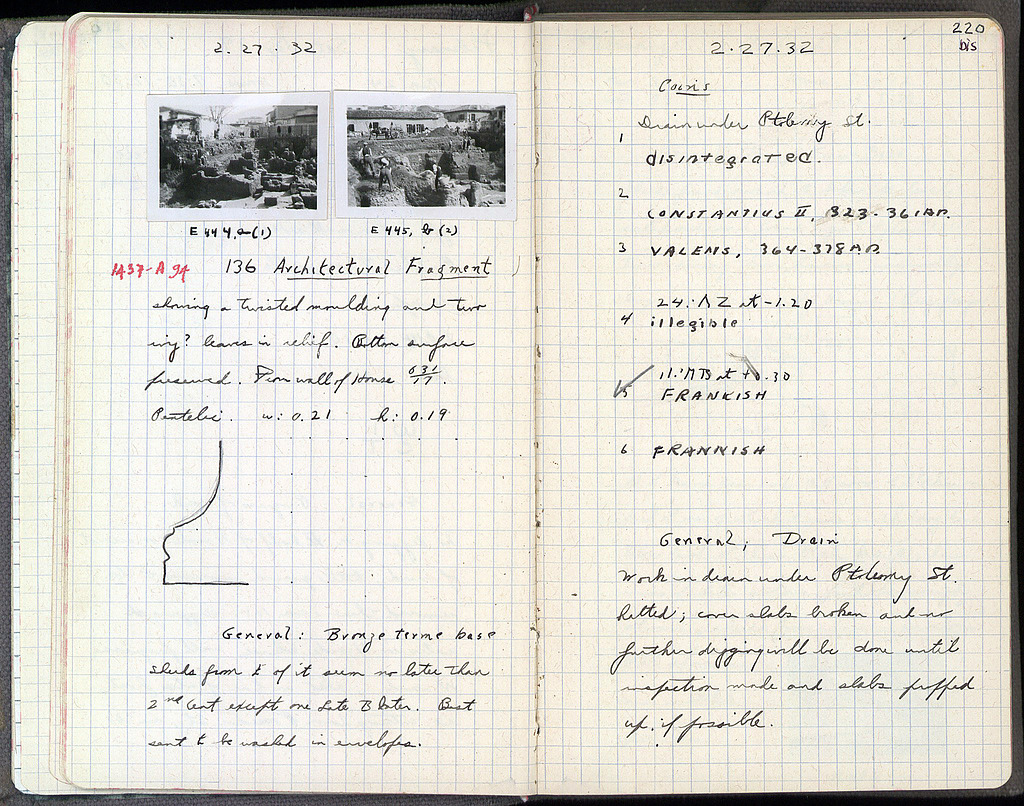 2. 27. 32
E 444, a (1)
E 445, b (2)
1437-A 94
136 Architectural Fragment
showing a twisted moulding and two
ivy? leaves in relief. Bottom surface
preserved. From wall of House 631/17.
Pentelic. w: 0.21 h: 0.19
General: Bronze terme base
sherds from of it seem no later than
2nd cent except one late B later. Best
sent to be washed in envelopes.
220
bis
2. 27. 32
Coins
Drain under Ptolemy St.
1
disintegrated.
2
CONSTANTIUS II, 323-361 A.D.
3 VALENS, 364-378 A.D.
24:ΛΖ at -1.20
4 illegible
at +0.30
5 FRANKISH
6 FRANKISH
General; Drain
Work in drain under Ptolemy St.
halted; cover slabs broken and no
further digging will be done until
inspection made and slabs propped
up, if possible.